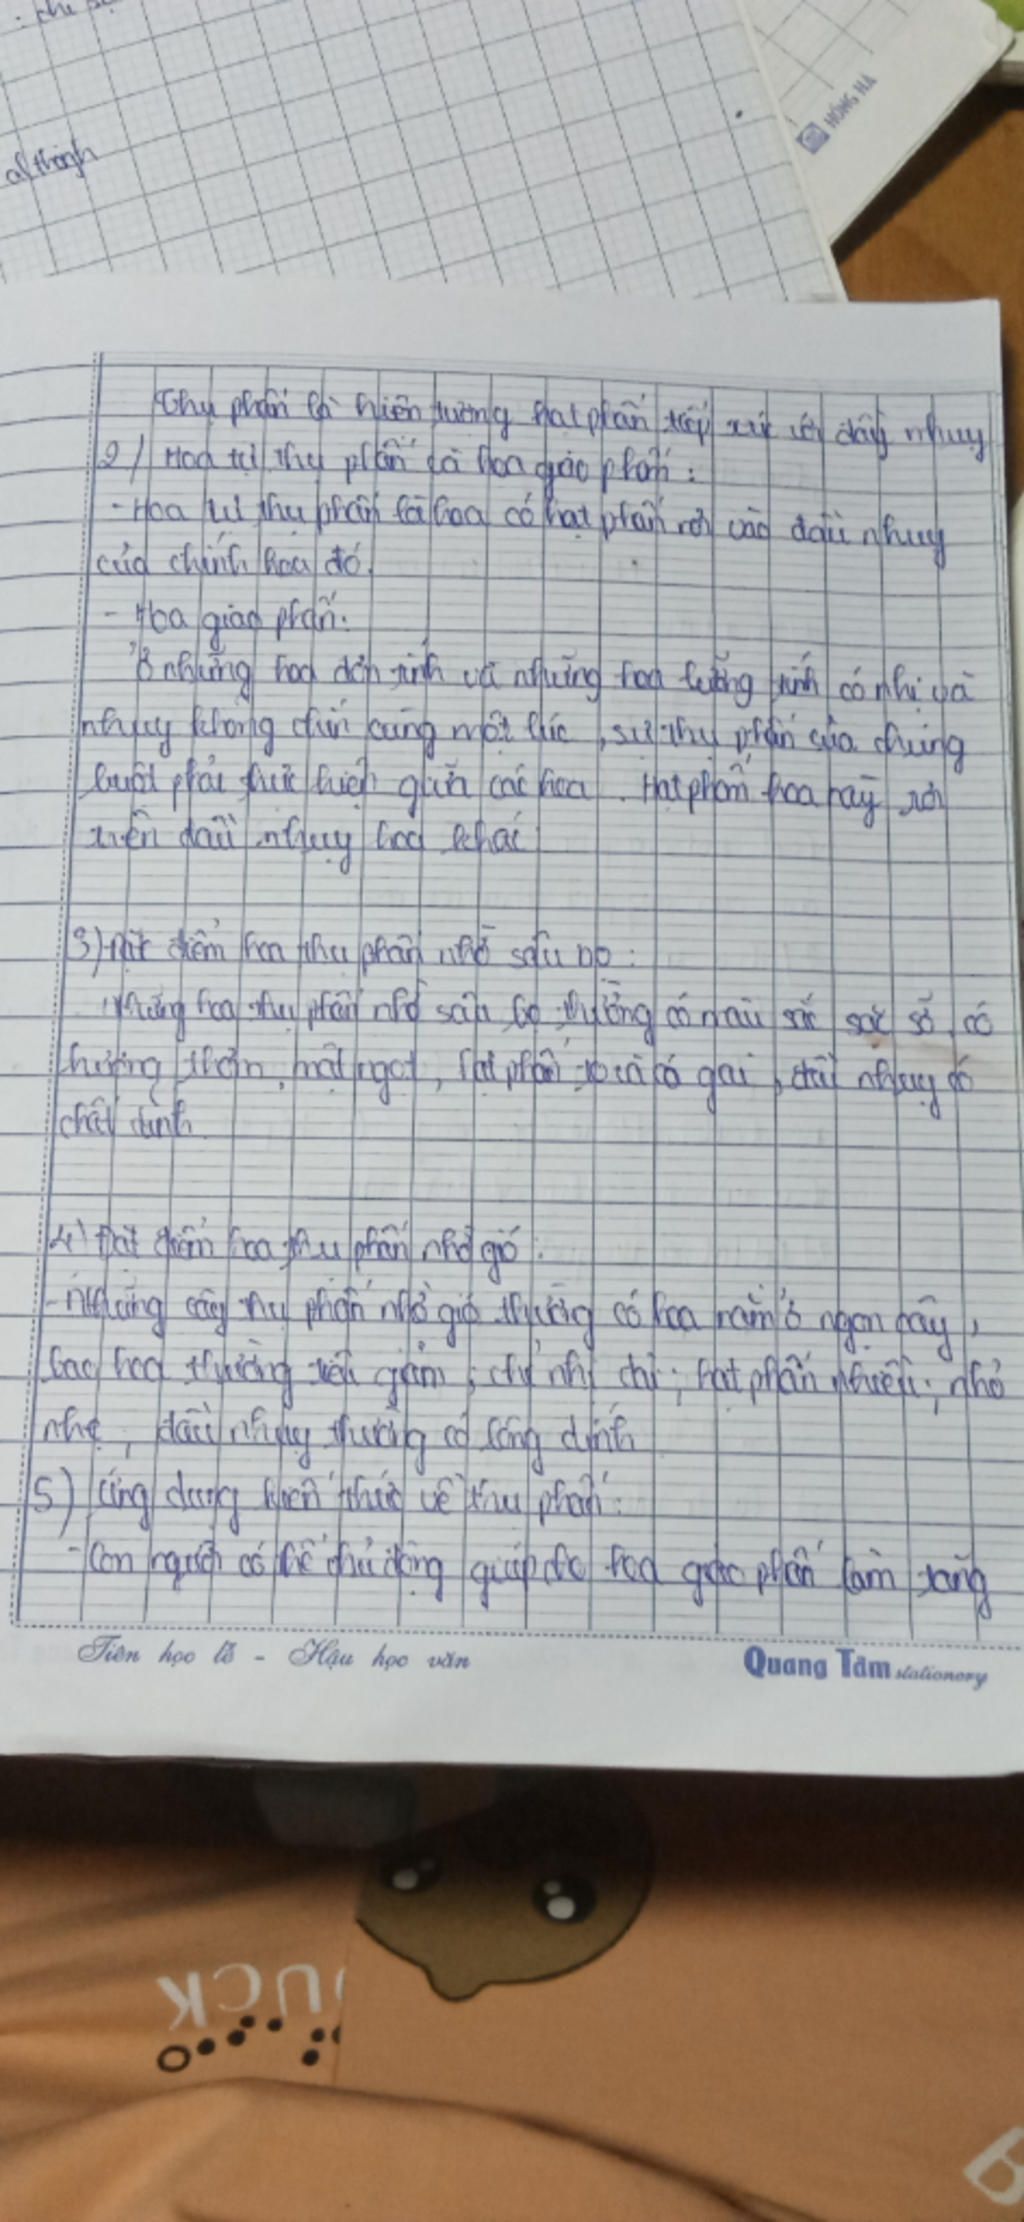 althành
HỒNG HÀ
Thụ phấn là hiện tượng hạt phấn tiếp xúc với đầu nhụy
2) Hoa tự thụ phấn và hoa giao phấn:
- Hoa tự thụ phấn là hoa có hạt phấn rơi vào đầu nhụy
của chính hoa đó.
- Hoa giao phấn:
Ở những hoa đơn tính và những hoa lưỡng tính có nhị và
nhụy không chín cùng một lúc, sự thụ phấn của chúng
buột phải thực hiện giữa các hoa. Hạt phấn hoa này rơi
trên đầu nhụy hoa khác
3) Đặt điểm hoa thụ phấn nhờ sâu bọ:
Những hoa thụ phấn nhờ sâu bọ thường có màu sắc sặc sỡ, có
hương thơm, mật ngọt, hạt phấn to và có gai, đầu nhụy có
chất dính
4) Đặt điểm hoa thụ phấn nhờ gió:
- Những cây thụ phấn nhờ gió thường có hoa nằm ở ngọn cây,
bao hoa thường tiêu giảm; chỉ nhị dài; hạt phấn nhiều; nhỏ
nhẹ, đầu nhụy thường có lông dính
5) Ứng dụng kiến thức về thụ phấn:
- Con người có thể chủ động giúp cho hoa giao phấn làm tăng
Tiên học lễ - Hậu học văn
Quang Tâm stationery
DUCK
B